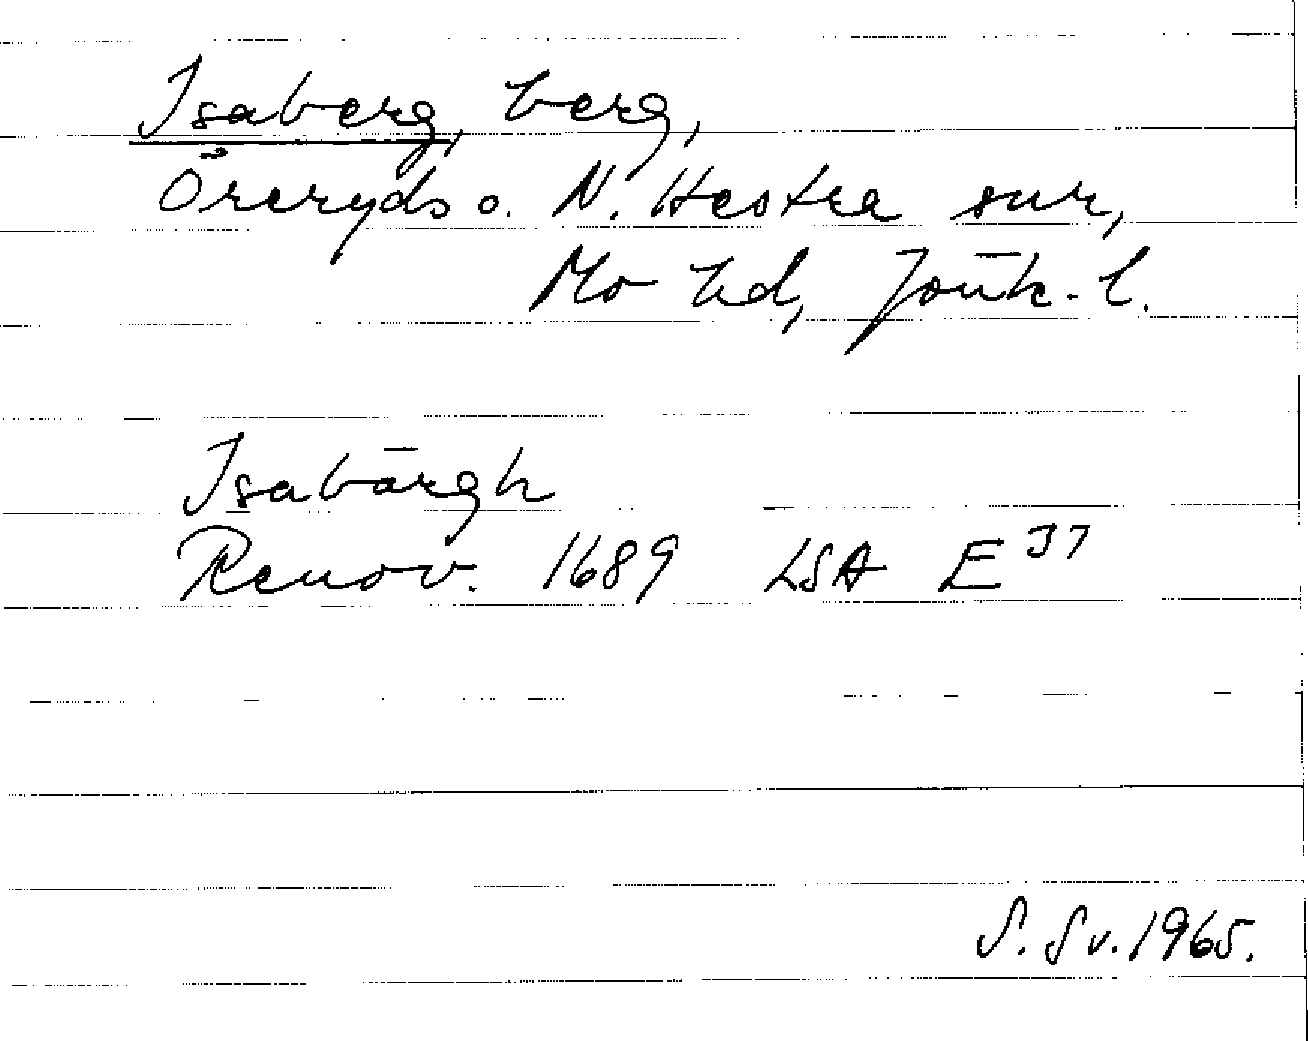 Isaberg, berg,
Öreryds o. N. Hestra snr,
Mo hd, Jönk. l.
Isabärgh
Renov. 1689 LSA E 37
S. Sv. 1965.